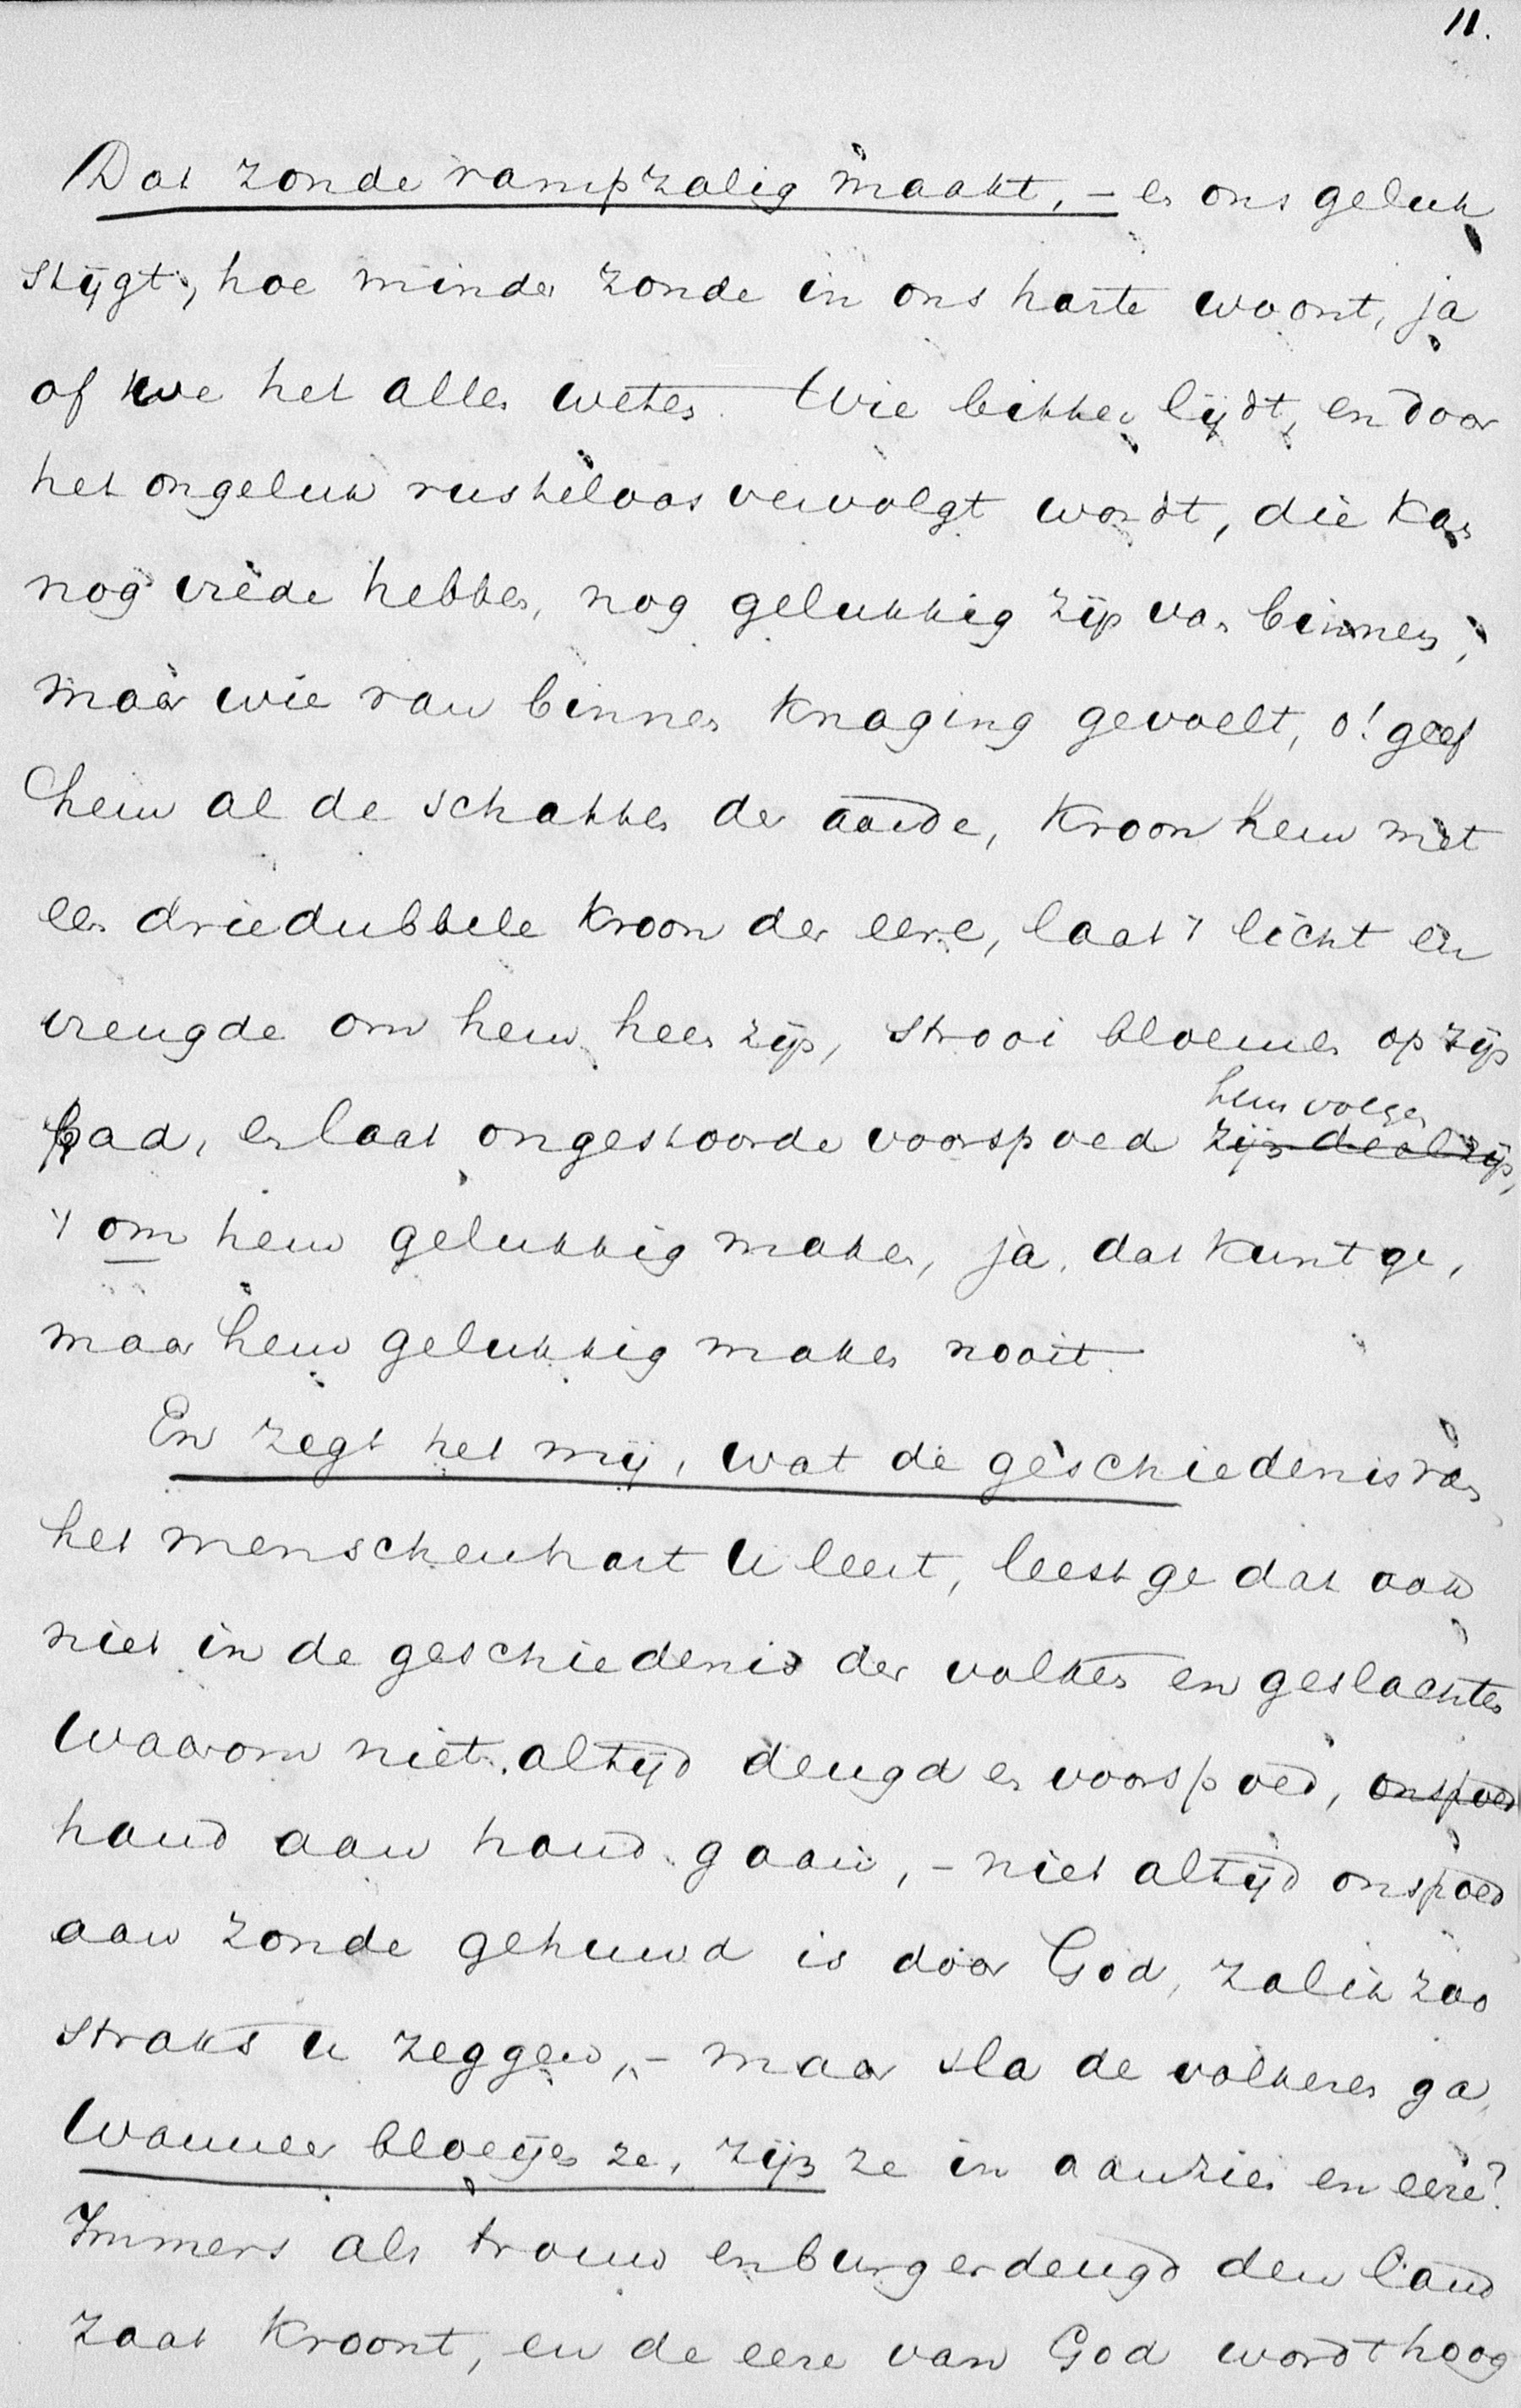 11.
Dat zonde rampzalig maakt, – en ons geluk
stijgt, hoe minder zonde in ons harte woont, ja
of we het allen weten. Wie bitter lijdt, en door
het ongeluk rusteloos vervolgt wordt, die kan
nog vrede hebben, nog gelukkig zijn van binnen,
maar wie van binnen knaging gevoelt, o! geef
hem al de schatten der aarde, kroon hem met
een driedubbele kroon der eere, laat 't licht en
vreugde om hem heen zijn, strooi bloemen op zijn
hem volgen
pad, en laat ongestoorde voorspoed zijn deel zijn,
't om hem gelukkig maken, ja, dat kunt ge,
maar hem gelukkig maken nooit.
En zegt het mij, wat de geschiedenis van
het menschenhart U leert, leest ge dat ook
niet in de geschiedenis der volken en geslachten
Waarom niet altijd deugd en voorspoed, onspoed
hand aan hand gaan, – niet altijd onspoed
aan zonde gehuwd is door God, zal ik zoo
straks u zeggen, – maar sla de volkeren ga,
Wanneer bloeijen ze, zijn ze in aanzien en eere?
Immers als trouw en burgerdeugd den land
zaat kroont, en de eere van God wordt hoog